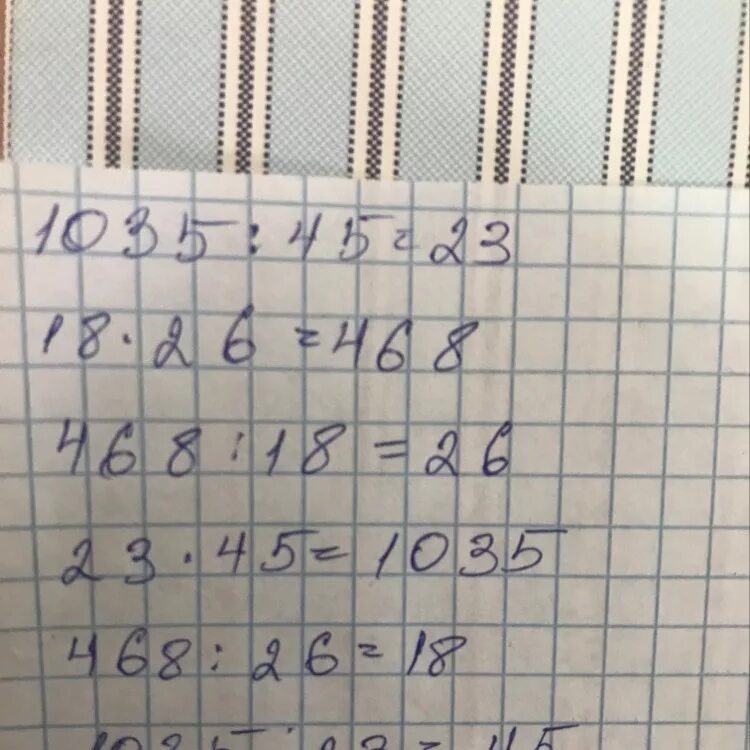 1035 : 45 = 23
18 · 26 = 468
468 : 18 = 26
23 · 45 = 1035
468 : 26 = 18
1035 : 23 = 45